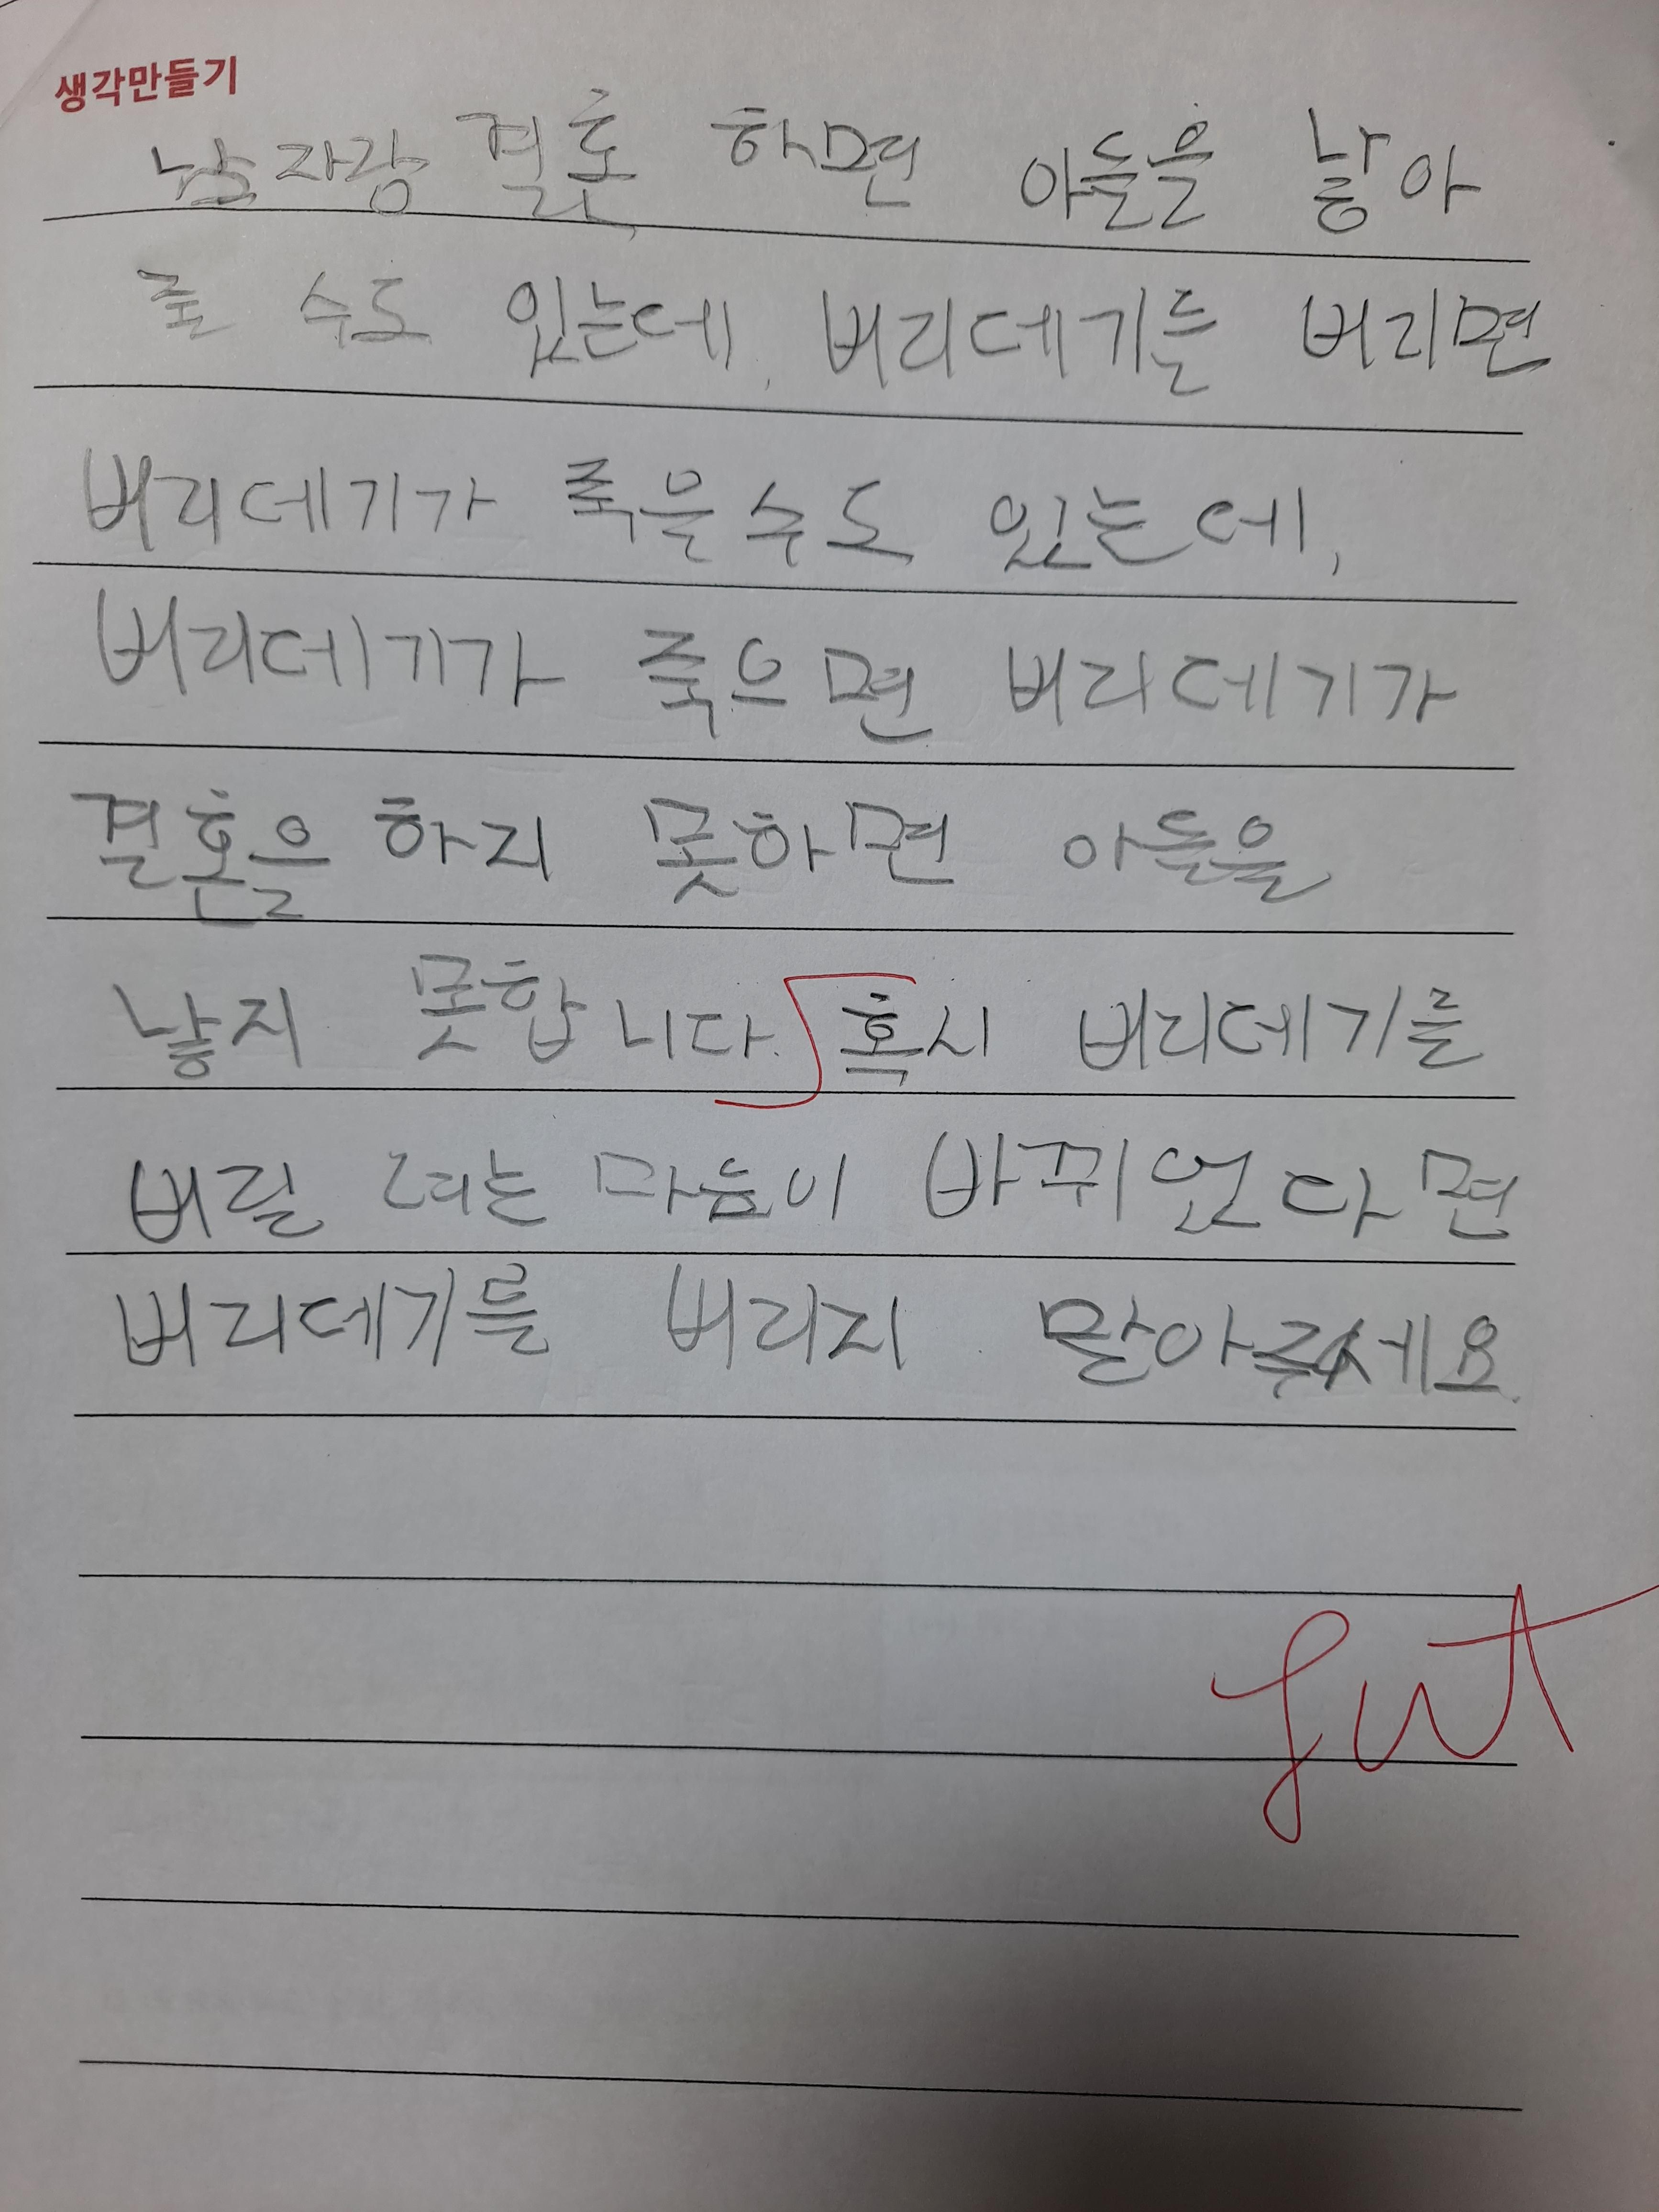 생각만들기
남자랑 결혼 하면 아들을 낳아
줄 수도 있는데, 버리데기를 버리면
버리데기가 죽을수도 있는데,
버리데기가 죽으면 버리데기가
결혼을 하지 못하면 아들을
낳지 못합니다. 혹시 버리데기를
버릴 려는 마음이 바뀌었다면
버리데기를 버리지 말아주세요.